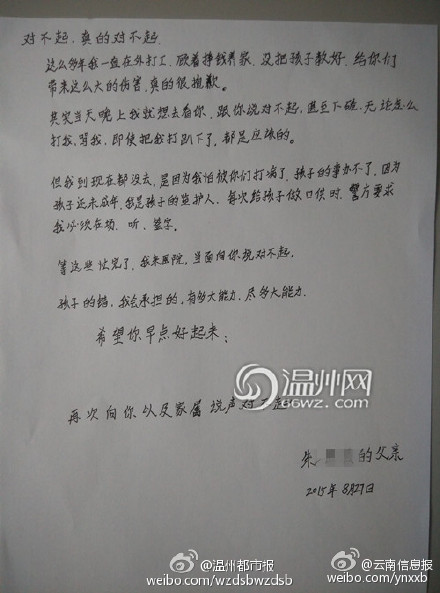 对不起，真的对不起．
这么多年我一直在外打工，顾着挣钱养家，没把孩子教好，给你们
带来这么大的伤害，真的很抱歉．
其实当天晚上我就想去看你，跟你说对不起，甚至下跪，无论怎么
打我，骂我，即使把我打趴下了，都是应该的．
但我到现在都没去，是因为我怕被你们打伤了，孩子的事办不了，因为
孩子还未成年，我是孩子的监护人，每次给孩子做口供时，警方要求
我必须在场，听，签字．
等这些忙完了，我来医院，当面向你说对不起．
孩子的错，我会承担的，有多大能力，尽多大能力．
希望你早点好起来；
温州网
66wz.com
再次向你以及家属说声对不起
朱 的父亲
2015年8月27日
@温州都市报
weibo.com/wzdsbwzdsb
@云南信息报
weibo.com/ynxxb